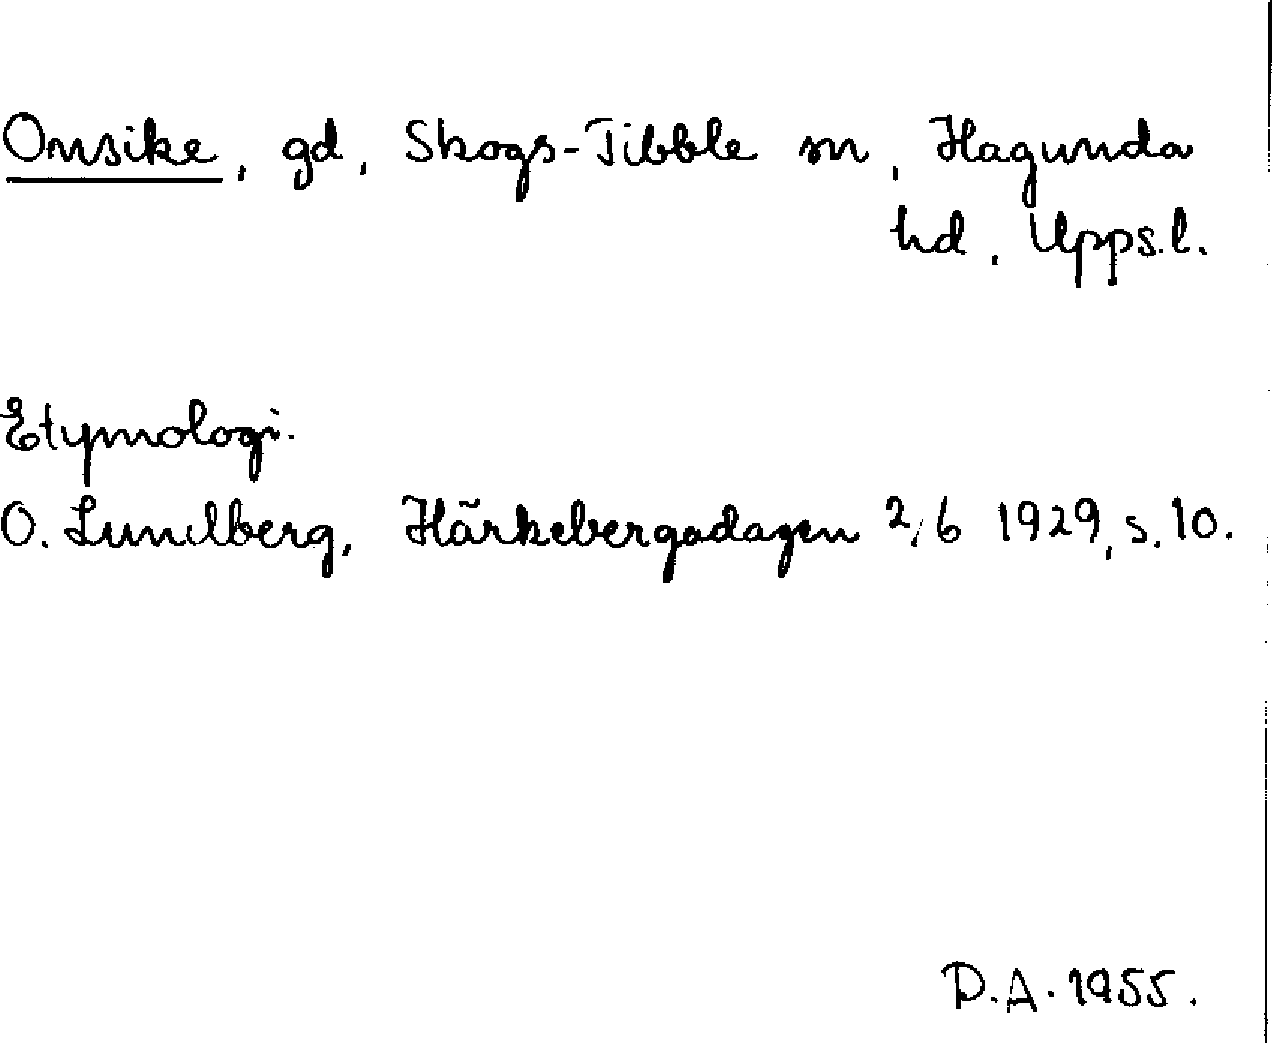 Onsike, gd, Skogs-Tibble sn, Hagunda
hd, Upps.l.
Etymologi.
O. Lundberg, Härkebergadagen 2/6 1929, s. 10.
D.A. 1955.